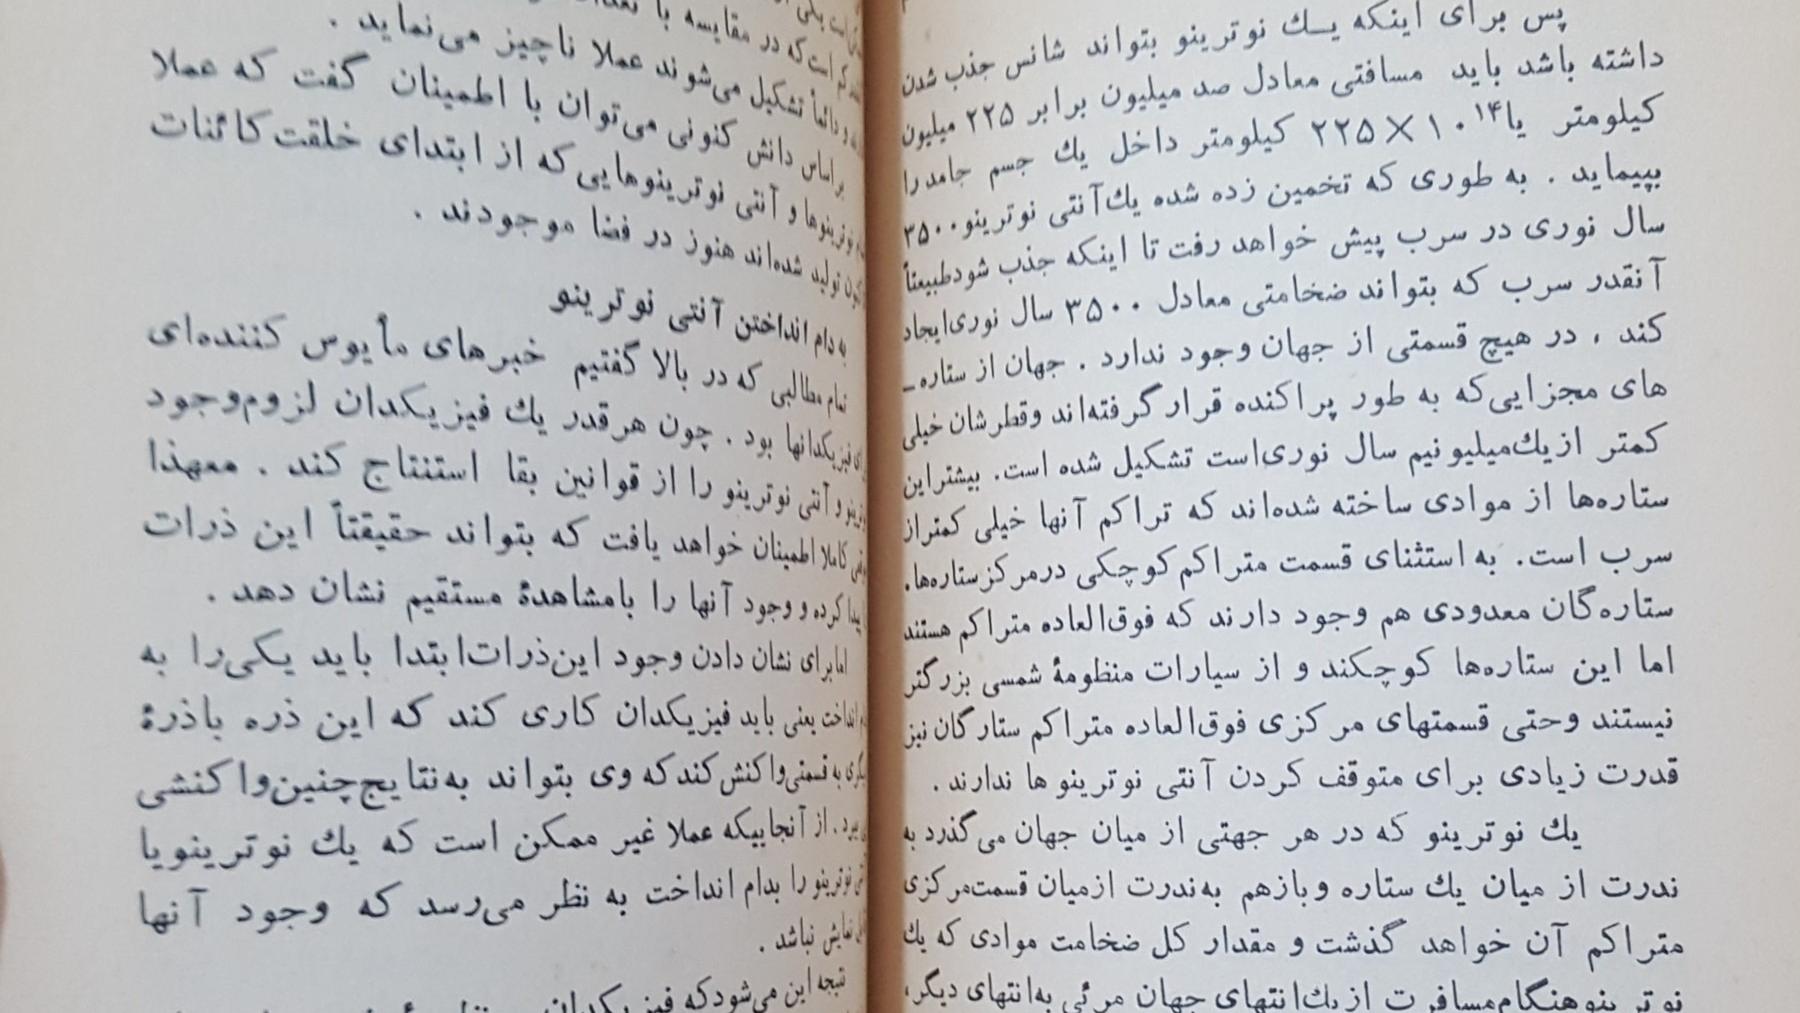 پس برای اینکه یک نوترینو بتواند شانس جذب شدن
داشته باشد باید مسافتی معادل صد میلیون برابر ۲۲۵ میلیون
کیلومتر یا ۲۲۵×۱۰¹⁴ کیلومتر داخل یك جسم جامد را
بپیماید . به طوری که تخمین زده شده یك آنتی نوترینو ۳۵۰۰
سال نوری در سرب پیش خواهد رفت تا اینکه جذب شود طبیعتاً
آنقدر سرب که بتواند ضخامتی معادل ۳۵۰۰ سال نوری ایجاد
کند ، در هیچ قسمتی از جهان وجود ندارد . جهان از ستاره‌ـ
های مجزایی که به طور پراکنده قرار گرفته‌اند وقطرشان خیلی
کمتر از یك میلیونیم سال نوری است تشکیل شده است. بیشتر این
ستاره‌ها از موادی ساخته شده‌اند که تراکم آنها خیلی کمتر از
سرب است. به استثنای قسمت متراکم کوچکی در مرکز ستاره‌ها.
ستاره‌گان معدودی هم وجود دارند که فوق‌العاده متراکم هستند
اما این ستاره‌ها کوچکند و از سیارات منظومهٔ شمسی بزرگتر
نیستند وحتی قسمتهای مرکزی فوق‌العاده متراکم ستارگان نیز
قدرت زیادی برای متوقف کردن آنتی نوترینو ها ندارند .
یك نوترینو که در هر جهتی از میان جهان می‌گذرد به
ندرت از میان یك ستاره وبازهم به‌ندرت ازمیان قسمت‌مرکزی
متراکم آن خواهد گذشت و مقدار کل ضخامت موادی که یك
نوترینو هنگام مسافرت از یك انتهای جهان مرئی به انتهای دیگر،
است که در مقایسه با
و دائماً تشکیل می‌شوند عملا ناچیز می‌نماید .
براساس دانش کنونی می‌توان با اطمینان گفت که عملا
نوترینوها و آنتی نوترینوهایی که از ابتدای خلقت کائنات
تولید شده‌اند هنوز در فضا موجودند .
به دام انداختن آنتی نوترینو
تمام مطالبی که در بالا گفتیم خبرهای مأیوس کننده‌ای
فیزیکدانها بود . چون هرقدر یك فیزیکدان لزوم‌وجود
و آنتی نوترینو را از قوانین بقا استنتاج کند . معهذا
کاملا اطمینان خواهد یافت که بتواند حقیقتاً این ذرات
پیدا کرده و وجود آنها را بامشاهدهٔ مستقیم نشان دهد .
اما برای نشان دادن وجود این‌ذرات‌ابتدا باید یکی‌را به
انداخت یعنی باید فیزیکدان کاری کند که این ذره باذرهٔ
به قسمتی‌واکنش کند که وی بتواند به‌نتایج‌چنین‌واکنشی
ببرد . از آنجاییکه عملا غیر ممکن است که یك نوترینویا
نوترینو را بدام انداخت به نظر می‌رسد که وجود آنها
نمایش نباشد .
نتیجه این می‌شود که فیزیکدان